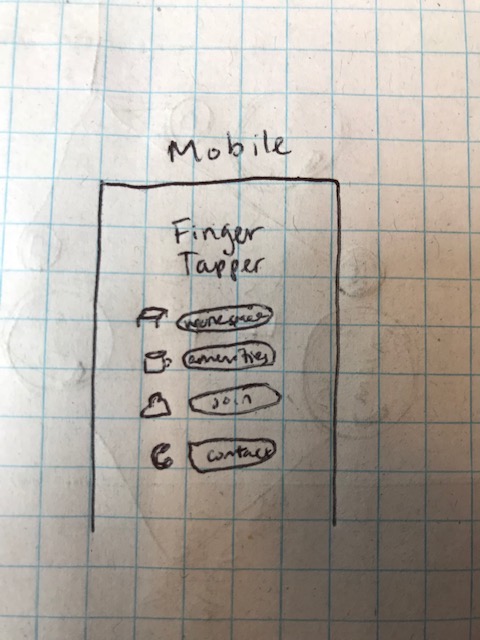 Mobile
Finger
Tapper
workspace
amenities
join
contact